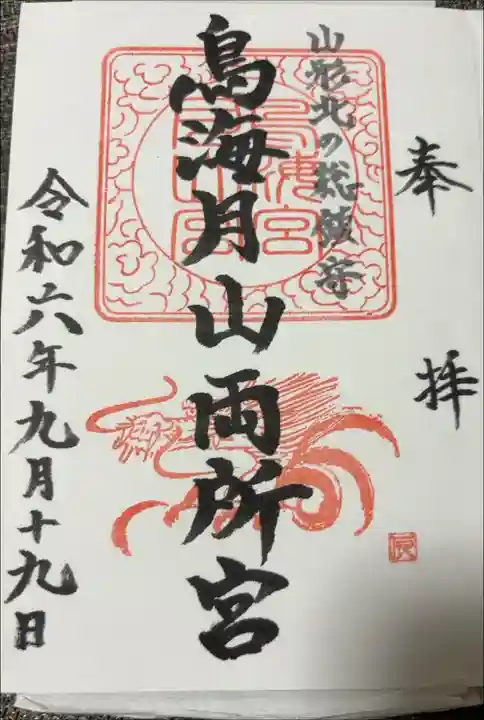 奉拝
山形北の総鎮守
鳥海月山両所宮
令和六年九月十九日
辰